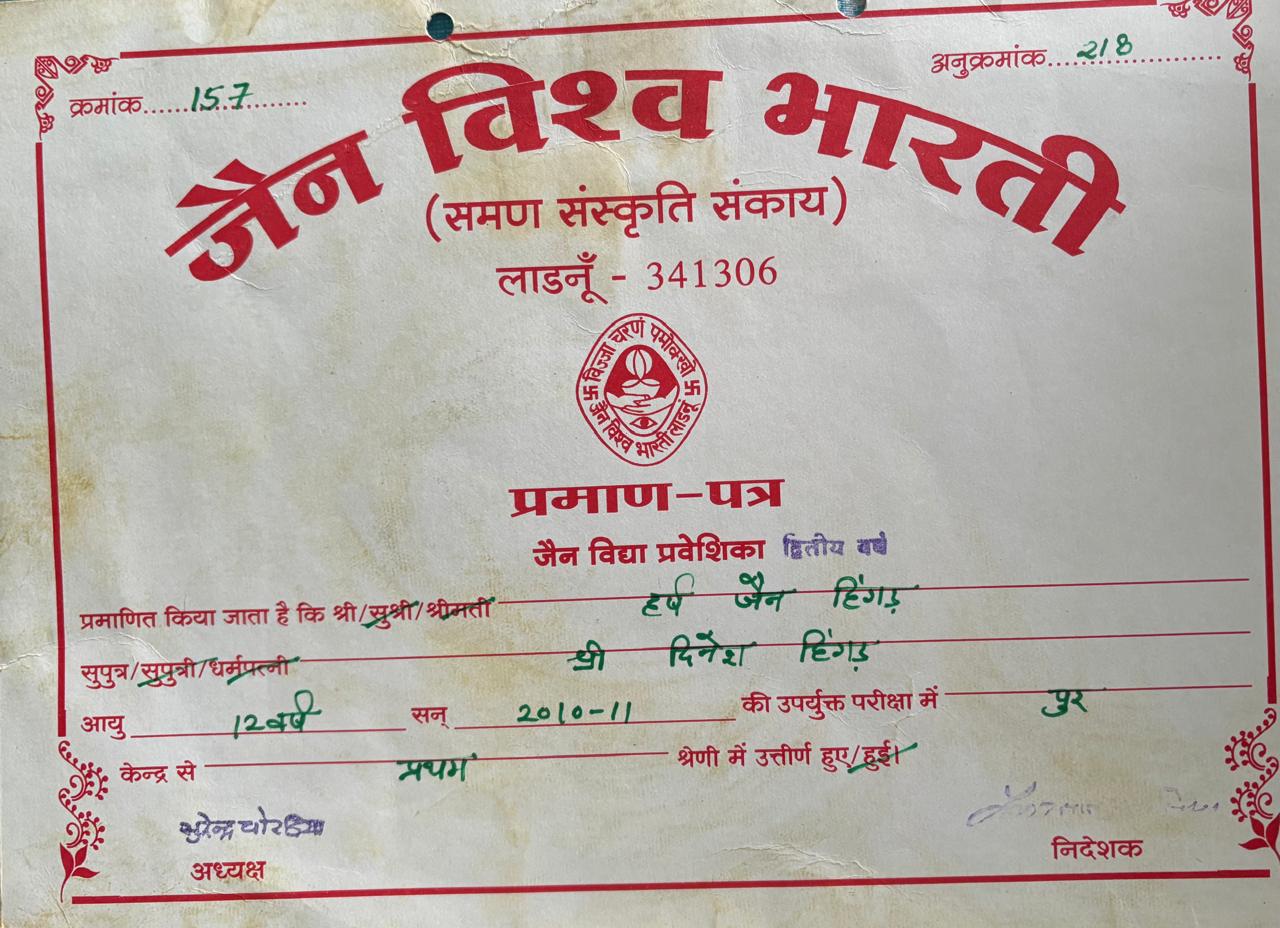 क्रमांक.....157........... अनुक्रमांक....218...............
जैन विश्व भारती
(समण संस्कृति संकाय)
लाडनूँ - 341306
卐 विज्जा चरणं पमोक्खो 卐
जैन विश्व भारती लाडनूं
प्रमाण-पत्र
जैन विद्या प्रवेशिका द्वितीय वर्ष
प्रमाणित किया जाता है कि श्री/सुश्री/श्रीमती हर्ष जैन हिंगड़
सुपुत्र/सुपुत्री/धर्मपत्नी श्री दिनेश हिंगड़
आयु 12 वर्ष सन् 2010-11 की उपर्युक्त परीक्षा में पुर
केन्द्र से प्रथम श्रेणी में उत्तीर्ण हुए/हुई।
सुरेन्द्र चोरडिया
अध्यक्ष निदेशक